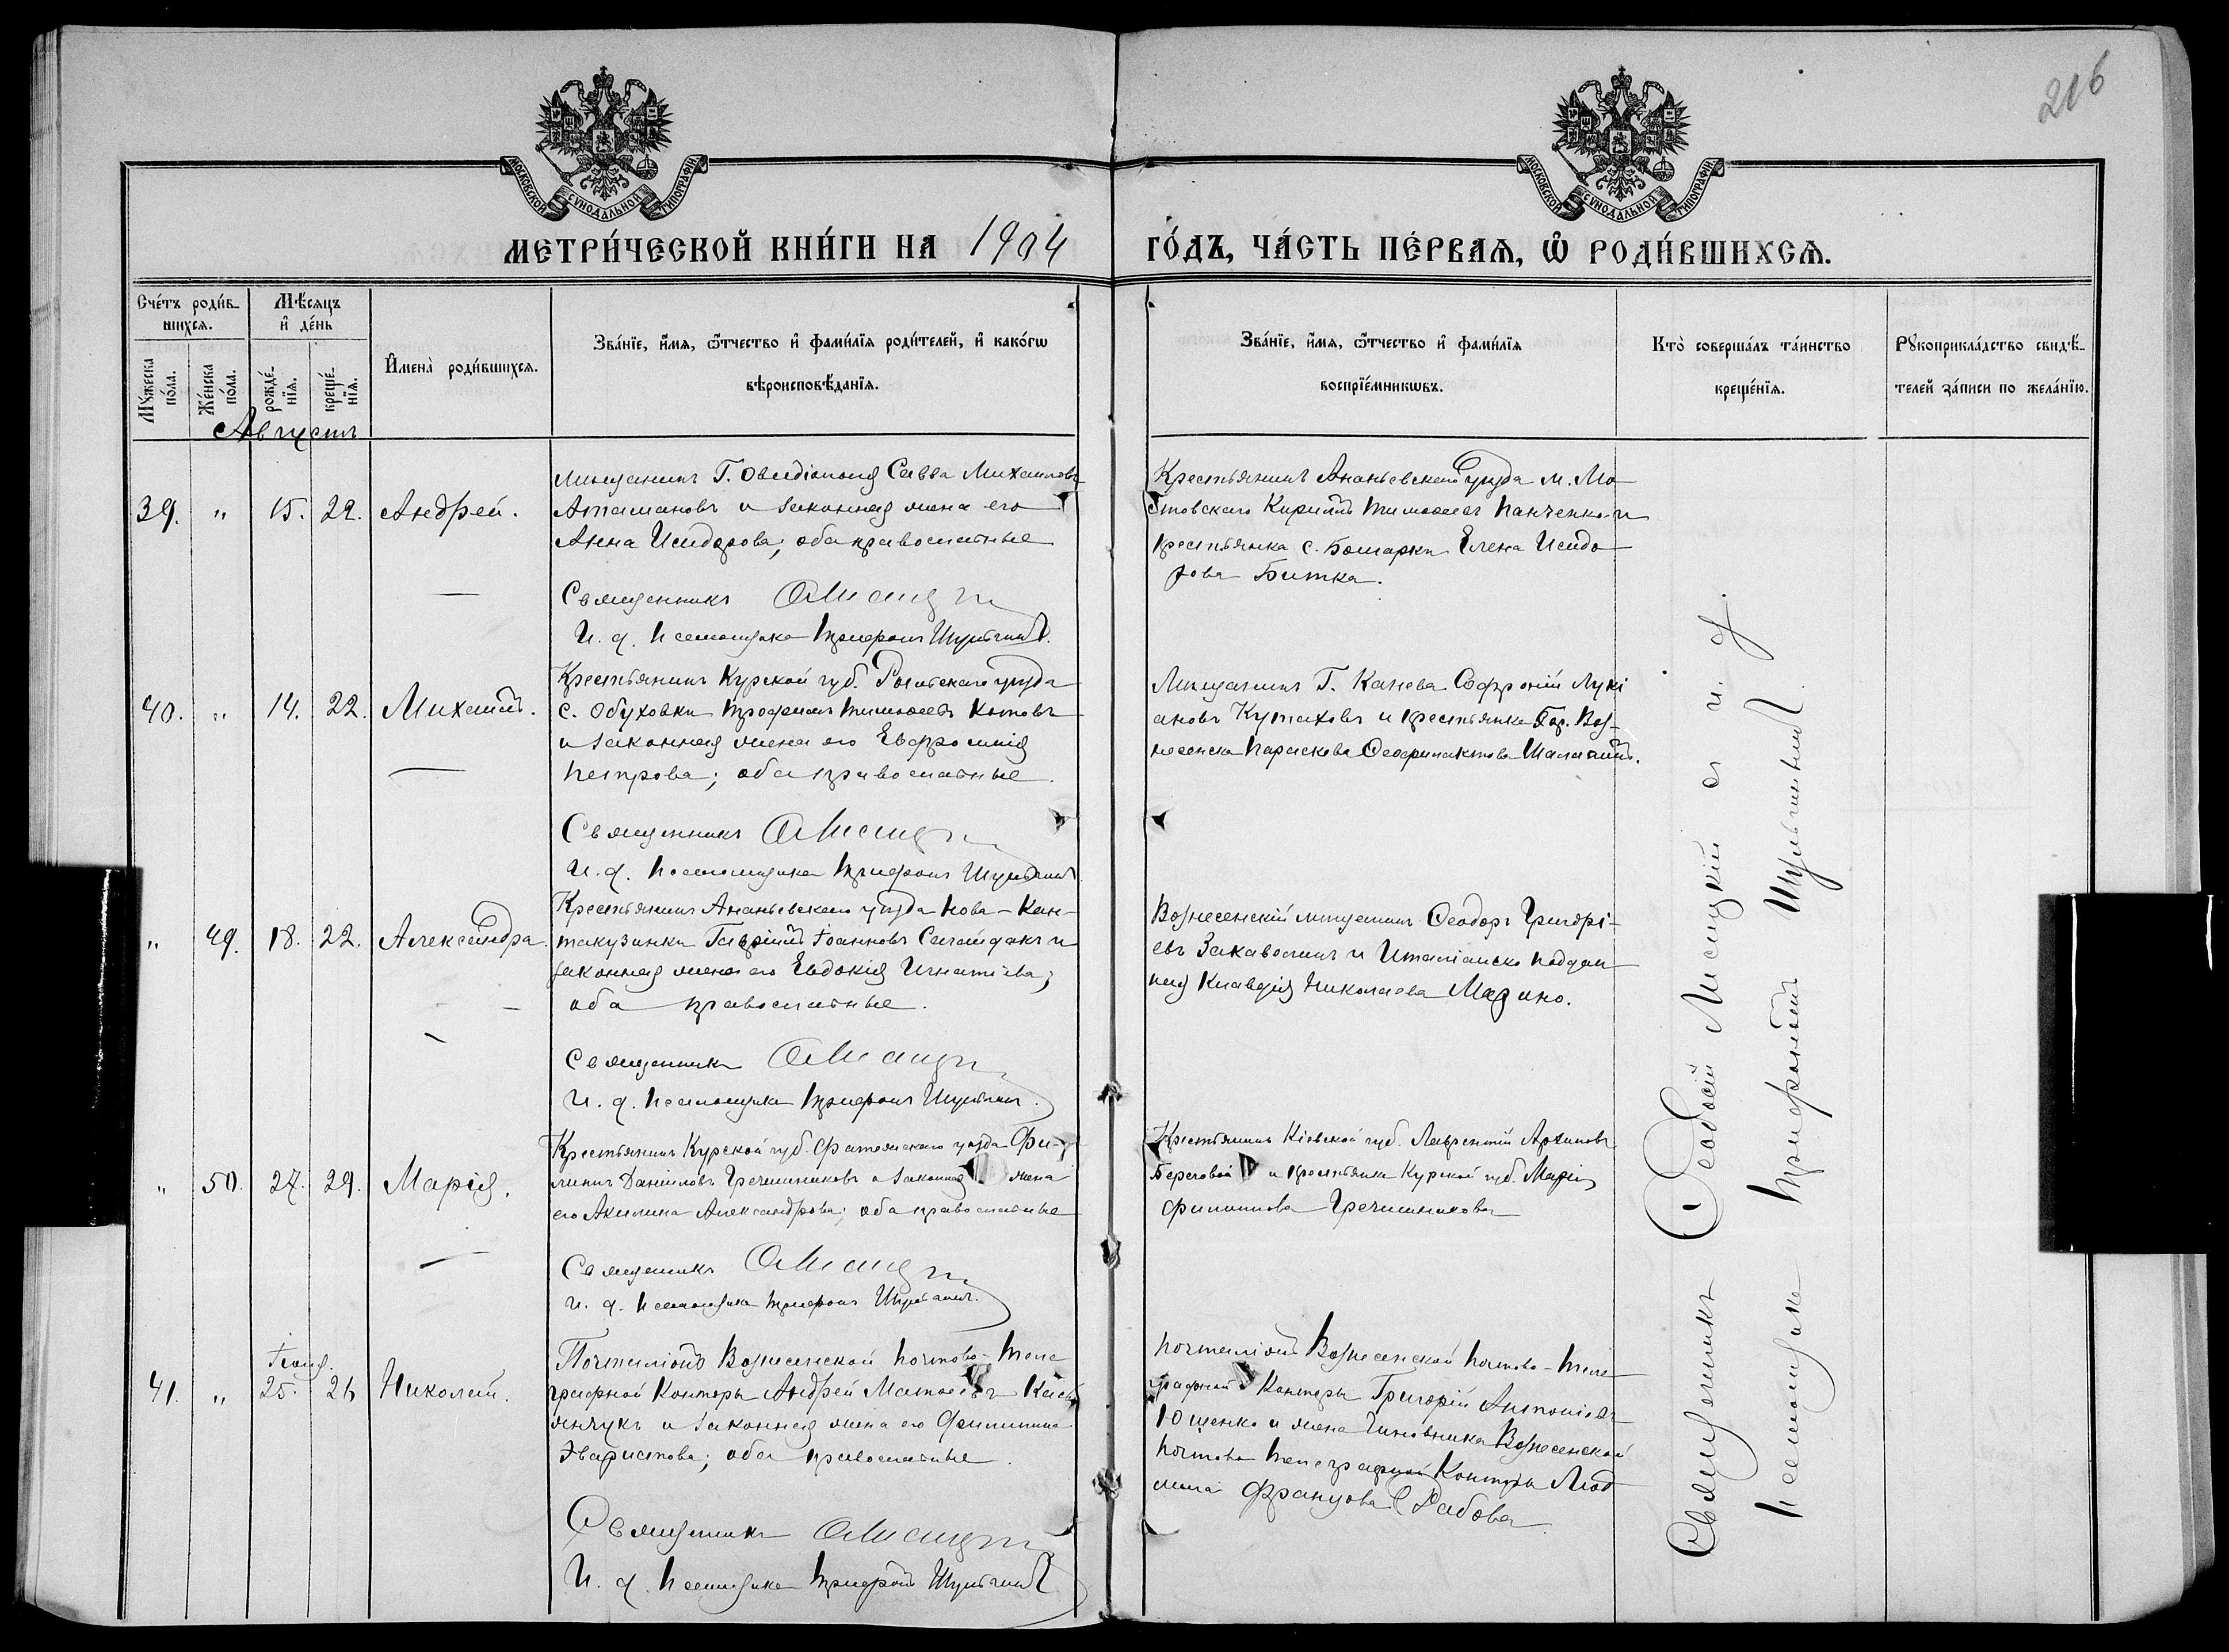 216
МОСКОВСКОЙ СѴНОДАЛЬНОЙ ТИПОГРАФІИ
МОСКОВСКОЙ СѴНОДАЛЬНОЙ ТИПОГРАФІИ
МЕТРИ́ЧЕСКОЙ КНИ́ГИ НА 1904 ГО́ДЪ, ЧА́СТЬ ПЕ́РВАѦ, Ѡ҆ РОДИ́ВШИХСѦ.
Сче́тъ роди́в-
шихсѧ.
Мꙋ́жеска по́ла.
Же́нска по́ла.
Мѣ́сѧцъ
и҆ де́нь
рожде́-нїѧ.
креще́-нїѧ.
И҆мена̀ роди́вшихсѧ.
Зва́нїе, и҆́мѧ, ѻ҆́тчество и҆ фами́лїѧ роди́телей, и҆ како́гѡ
вѣроисповѣ́данїѧ.
Зва́нїе, и҆́мѧ, ѻ҆́тчество и҆ фами́лїѧ
воспрїе́мникѡвъ.
Кто̀ соверша́лъ та́инство
креще́нїѧ.
Рꙋкоприкла́дство свидѣ́-
телей за́писи по жела́нїю.
Августъ
39. " 15. 22. Андрей.
Мѣщанинъ Г. Овидіополя Савва Михаиловъ
Атамановъ и законная жена его
Анна Исидорова; оба православные
Священникъ
И. д. Псаломщика Трифонъ Шульгинъ.
Крестьянинъ Ананьевскаго уѣзда м. Мо
стовскаго Кириллъ Тимоѳеевъ Панченко и
крестьянка с. Елена Исидо
рова Битка.
40. " 14. 22. Михаилъ.
Крестьянинъ Курской губ. уѣзда
с. Обуховки Трофимъ Тимоѳеевъ Котовъ
и законная жена его Евфросинія
Петрова; оба православные.
Священникъ
И. д. Псаломщика Трифонъ Шульгинъ
Мѣщанинъ Г. Канева Софроній Лукі
ановъ Кутаховъ и крестьянка Гор. Воз-
несенска Параскева Ѳеофилактова
" 49. 18. 22. Александра.
Крестьянинъ Ананьевскаго уѣзда Нова-Кан-
такузинки Гавріилъ Іоанновъ Сагайдакъ и
законная жена его Евдокія Игнатіева;
оба православные.
Священникъ
И. д. Псаломщика Трифонъ Шульгинъ.
Вознесенскій мѣщанинъ Ѳеодоръ Григорі-
евъ и Италіанско поддан
ная Клавдія Николаева Мадино.
" 50. 27. 29. Марія.
Крестьянинъ Курской губ. Фатежскаго уѣзда Фи-
липпъ Даніиловъ Гречишниковъ и законная жена
его Акилина Александрова; оба православные
Священникъ
И. д. Псаломщика Трифонъ Шульгинъ.
Крестьянинъ Кіевской губ. Лаврентій Архиповъ
Береговой и крестьянка Курской губ. Марія
Филиппова Гречишникова
41. " 25. 26 Николай.
Почталіонъ Вознесенской Почтово-Теле
графной Конторы Андрей Матѳеевъ
и законная жена его
Эваристова; оба православные.
Священникъ
И. д. Псаломщика Трифонъ Шульгинъ
Почталіонъ Вознесенской Почтово-Теле
графной Конторы Григорій Антоніевъ
Ющенко и жена Чиновника Вознесенской
Почтово Телеграфной Конторы Люд
мила Францова
Священникъ Ѳеодосій Лисицкій съ и. д.
Псаломщика Трифономъ Шульгинымъ